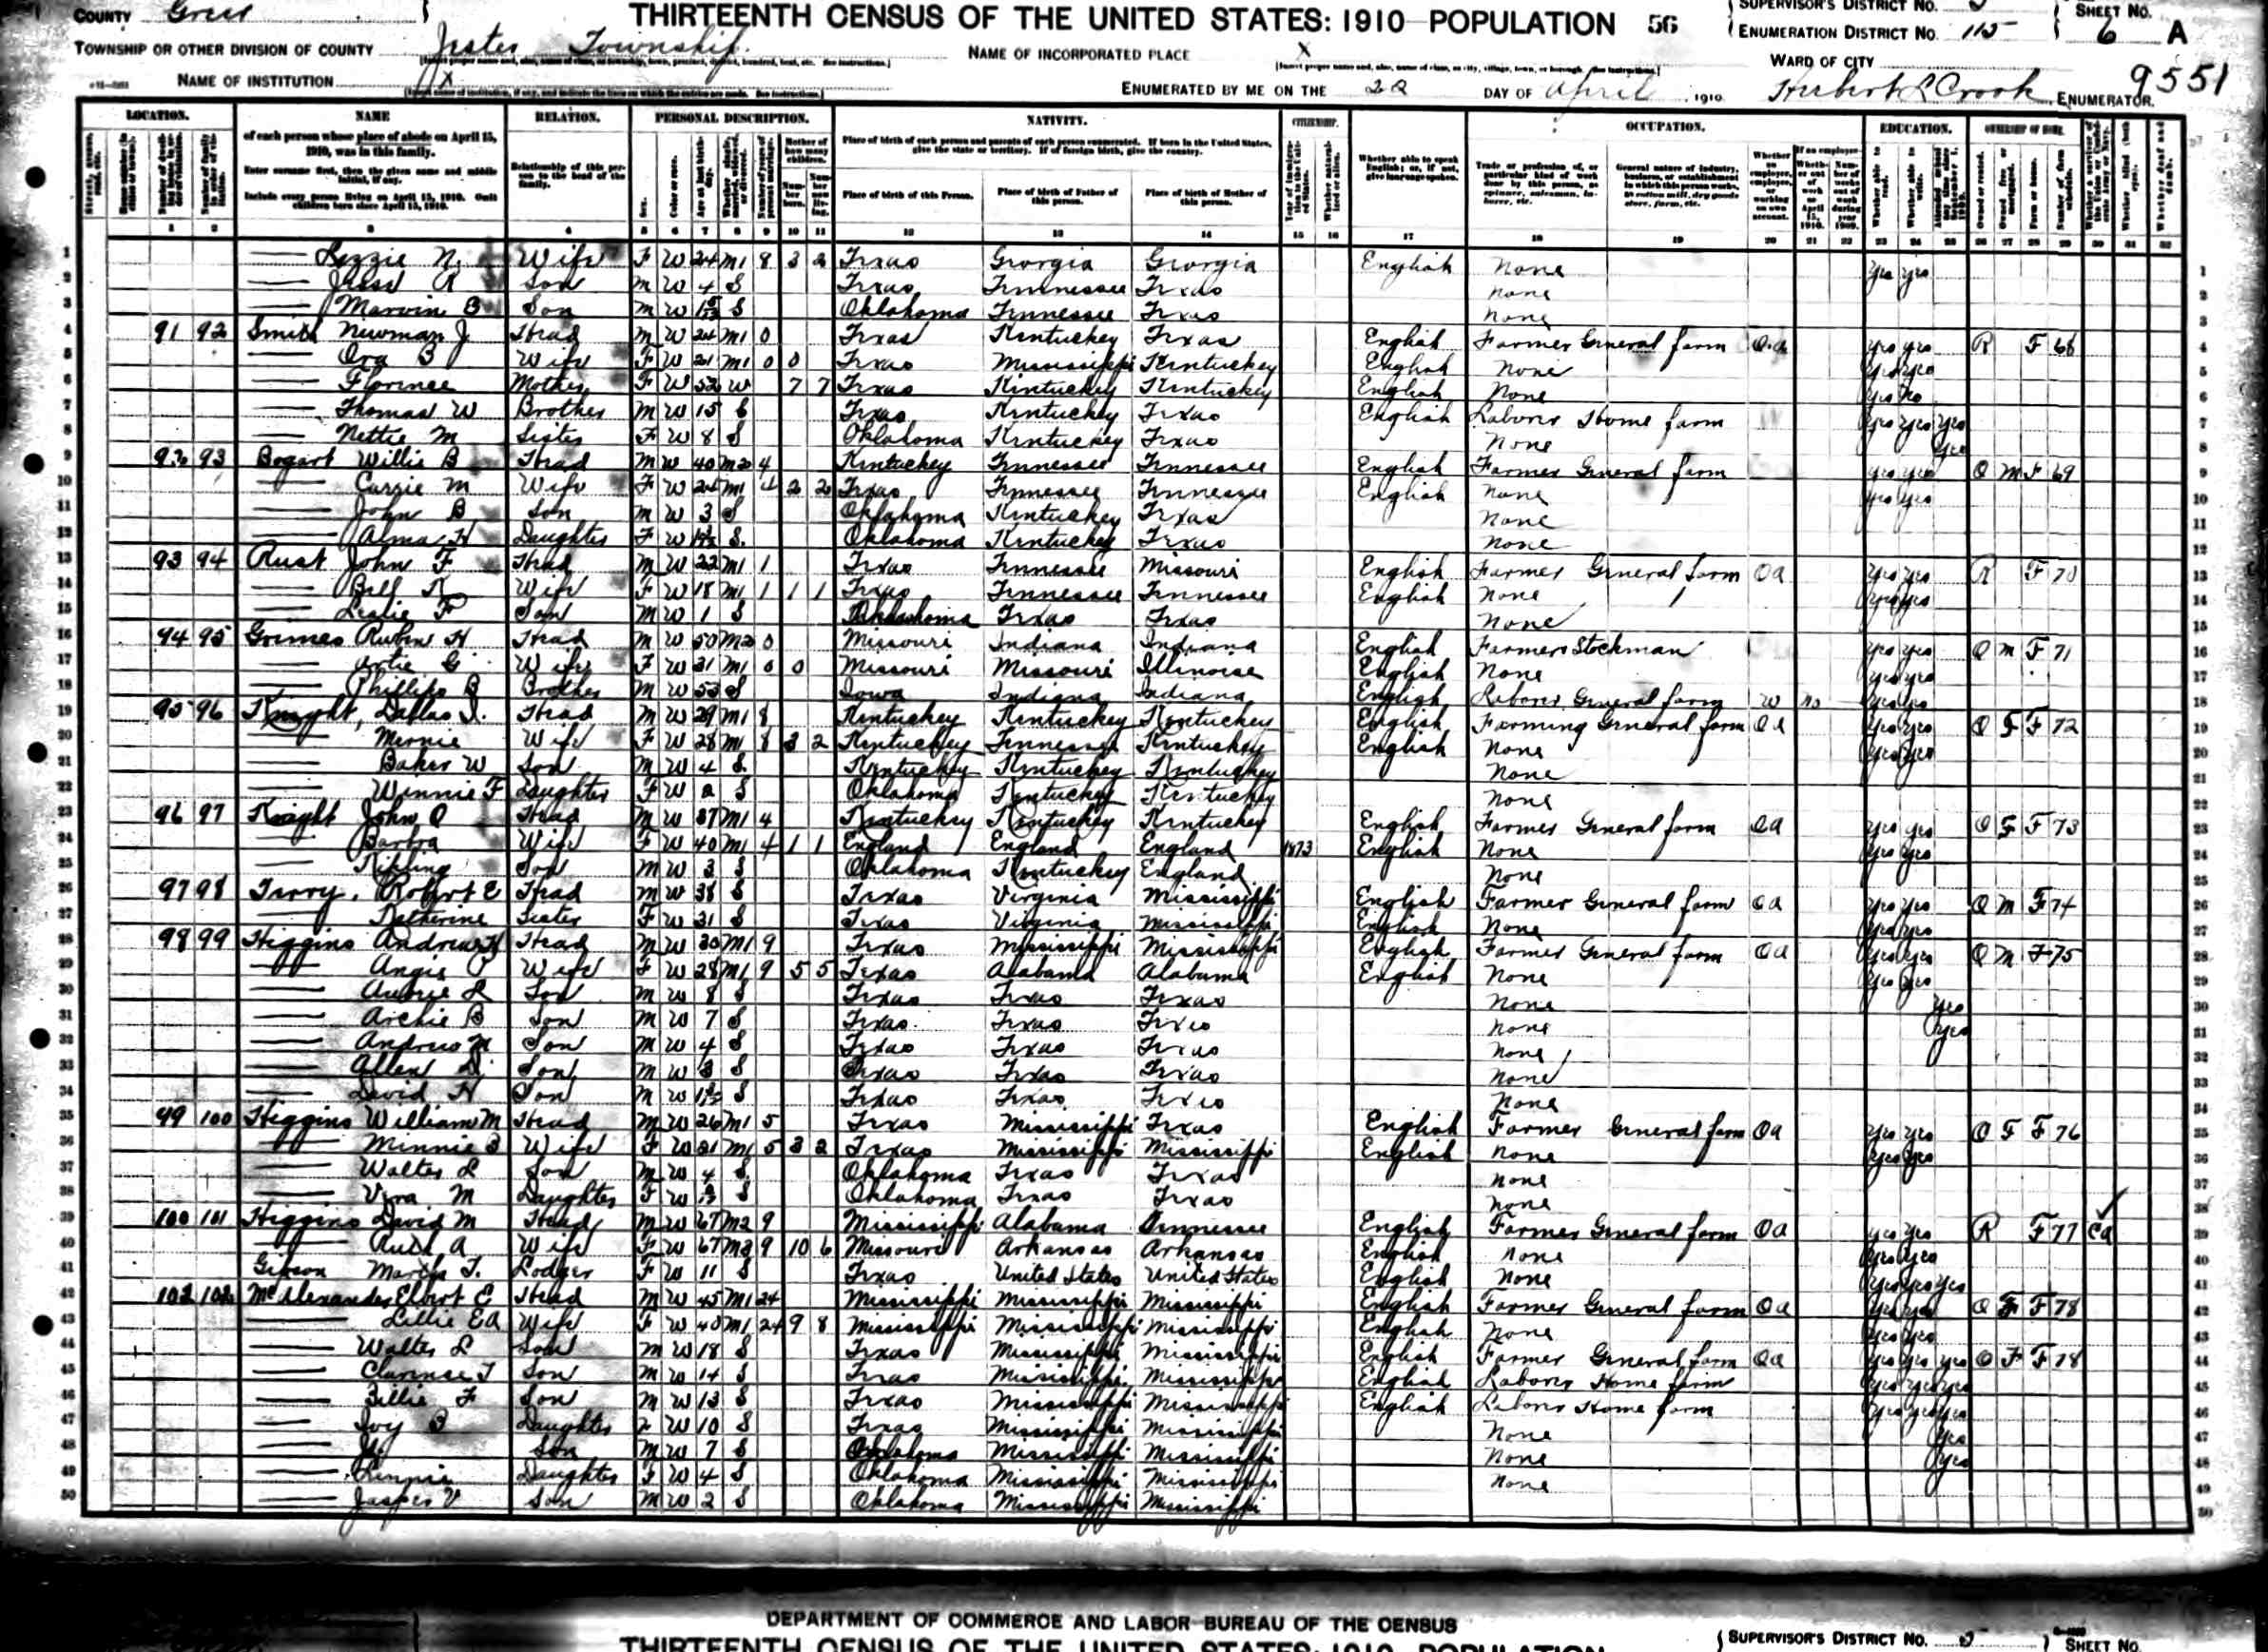 COUNTY Greer
THIRTEENTH CENSUS OF THE UNITED STATES: 1910 POPULATION 56
SUPERVISOR'S DISTRICT NO. 5
SHEET NO. 6 A
TOWNSHIP OR OTHER DIVISION OF COUNTY Jester Township
NAME OF INCORPORATED PLACE X
ENUMERATION DISTRICT NO. 115
NAME OF INSTITUTION X
WARD OF CITY
ENUMERATED BY ME ON THE 22 DAY OF April, 1910. Hubert L Crook, ENUMERATOR. 9551
LOCATION. NAME RELATION. PERSONAL DESCRIPTION. NATIVITY. CITIZENSHIP. OCCUPATION. EDUCATION. OWNERSHIP OF HOME.
of each person whose place of abode on April 15, 1910, was in this family.
Enter surname first, then the given name and middle initial, if any.
Include every person living on April 15, 1910. Omit children born since April 15, 1910.
Relationship of this person to the head of the family.
Place of birth of each person and parents of each person enumerated. If born in the United States, give the state or territory. If of foreign birth, give the country.
Place of birth of this Person. Place of birth of Father of this person. Place of birth of Mother of this person.
Whether able to speak English; or, if not, give language spoken.
1 Lizzie N. Wife F W 24 M1 8 3 2 Texas Georgia Georgia English None Yes Yes
2 Jesse R Son M W 4 S Texas Tennessee Texas None
3 Marvin B Son M W S Oklahoma Tennessee Texas None
4 91 92 Smith Newman J Head M W 24 M1 0 Texas Kentucky Texas English Farmer General farm Oa Yes Yes R F 68
5 Ora B Wife F W 21 M1 0 0 Texas Mississippi Kentucky English None Yes Yes
6 Florence Mother F W 52 W 7 7 Texas Kentucky Kentucky English None Yes No
7 Thomas W Brother M W 15 S Texas Kentucky Texas English Laborer Home farm Yes Yes Yes
8 Nettie M Sister F W 8 S Oklahoma Kentucky Texas None Yes
9 92 93 Bogart Willie B Head M W 40 M2 4 Kentucky Tennessee Tennessee English Farmer General farm Yes Yes O M F 69
10 Carrie M Wife F W 24 M1 4 2 2 Texas Tennessee Tennessee English None Yes Yes
11 John B Son M W 3 S Oklahoma Kentucky Texas None
12 Alma H Daughter F W S. Oklahoma Kentucky Texas None
13 93 94 Rust John F Head M W 22 M1 1 Texas Tennessee Missouri English Farmer General farm Oa Yes Yes R F 70
14 Bell Wife F W 18 M1 1 1 1 Texas Tennessee Tennessee English None Yes Yes
15 Leslie F Son M W 1 S Oklahoma Texas Texas None
16 94 95 Grimes Rubin H Head M W 50 M2 0 Missouri Indiana Indiana English Farmer Stockman Yes Yes O M F 71
17 Artie G Wife F W 31 M1 0 0 Missouri Missouri Illinoise English None Yes Yes
18 Phillip B Brother M W 53 S Iowa Indiana Indiana English Laborer General farm W no Yes Yes
19 95 96 Knight, Dallas Head M W 29 M1 8 Kentucky Kentucky Kentucky English Farming General farm Oa Yes Yes O F F 72
20 Mernie Wife F W 28 M1 8 3 2 Kentucky Tennessee Kentucky English None Yes Yes
21 Baker W Son M W 4 S. Kentucky Kentucky Kentucky None
22 Winnie F Daughter F W 2 S Oklahoma Kentucky Kentucky None
23 96 97 Knight John O Head M W 37 M1 4 Kentucky Kentucky Kentucky English Farmer General farm Oa Yes Yes O F F 73
24 Barbra Wife F W 40 M1 4 1 1 England England England 1873 English None Yes Yes
25 Kipling Son M W 3 S Oklahoma Kentucky England None
26 97 98 Terry, Robert E Head M W 38 S Texas Virginia Mississippi English Farmer General farm Oa Yes Yes O M F 74
27 Katherine Sister F W 31 S Texas Virginia Mississippi English None Yes Yes
28 98 99 Higgins Andrew H Head M W 30 M1 9 Texas Mississippi Mississippi English Farmer General farm Oa Yes Yes O M F 75
29 Angie P Wife F W 28 M1 9 5 5 Texas Alabama Alabama English None Yes Yes
30 Aubrie L Son M W 8 S Texas Texas Texas None Yes
31 Archie B Son M W 7 S Texas Texas Texas None Yes
32 Andrew M Son M W 4 S Texas Texas Texas None
33 Allen D. Son M W 3 S Texas Texas Texas None
34 David H Son M W S Texas Texas Texas None
35 99 100 Higgins William M Head M W 26 M1 5 Texas Mississippi Texas English Farmer General farm Oa Yes Yes O F F 76
36 Minnie B Wife F W 21 M1 5 3 2 Texas Mississippi Mississippi English None Yes Yes
37 Walter L Son M W 4 S Oklahoma Texas Texas None
38 Vera M Daughter F W S Oklahoma Texas Texas None
39 100 101 Higgins David M Head M W 67 M2 9 Mississippi Alabama Tennessee English Farmer General farm Oa Yes Yes R F 77 ca
40 Ruth A Wife F W 67 M2 9 10 6 Missouri Arkansas Arkansas English None Yes Yes
41 Gibson Martha T. Lodger F W 11 S Texas United States United States English None Yes Yes Yes
42 102 102 McAlexander Elbert C Head M W 45 M1 24 Mississippi Mississippi Mississippi English Farmer General farm Oa Yes Yes O F F 78
43 Lillie E A Wife F W 40 M1 24 9 8 Mississippi Mississippi Mississippi English None Yes Yes
44 Walter L Son M W 18 S Texas Mississippi Mississippi English Farmer General farm Oa Yes Yes Yes O F F 78
45 Clarence T Son M W 14 S Texas Mississippi Mississippi English Laborer Home farm Yes Yes Yes
46 Billie F Son M W 13 S Texas Mississippi Mississippi English Laborer Home farm Yes Yes Yes
47 Ivy B Daughter F W 10 S Texas Mississippi Mississippi None Yes
48 Son M W 7 S Oklahoma Mississippi Mississippi None Yes
49 Linnie Daughter F W 4 S Oklahoma Mississippi Mississippi None
50 Jasper V Son M W 2 S Oklahoma Mississippi Mississippi
DEPARTMENT OF COMMERCE AND LABOR-BUREAU OF THE CENSUS
THIRTEENTH CENSUS OF THE UNITED STATES: 1910 POPULATION
SUPERVISOR'S DISTRICT NO. 5
SHEET NO.